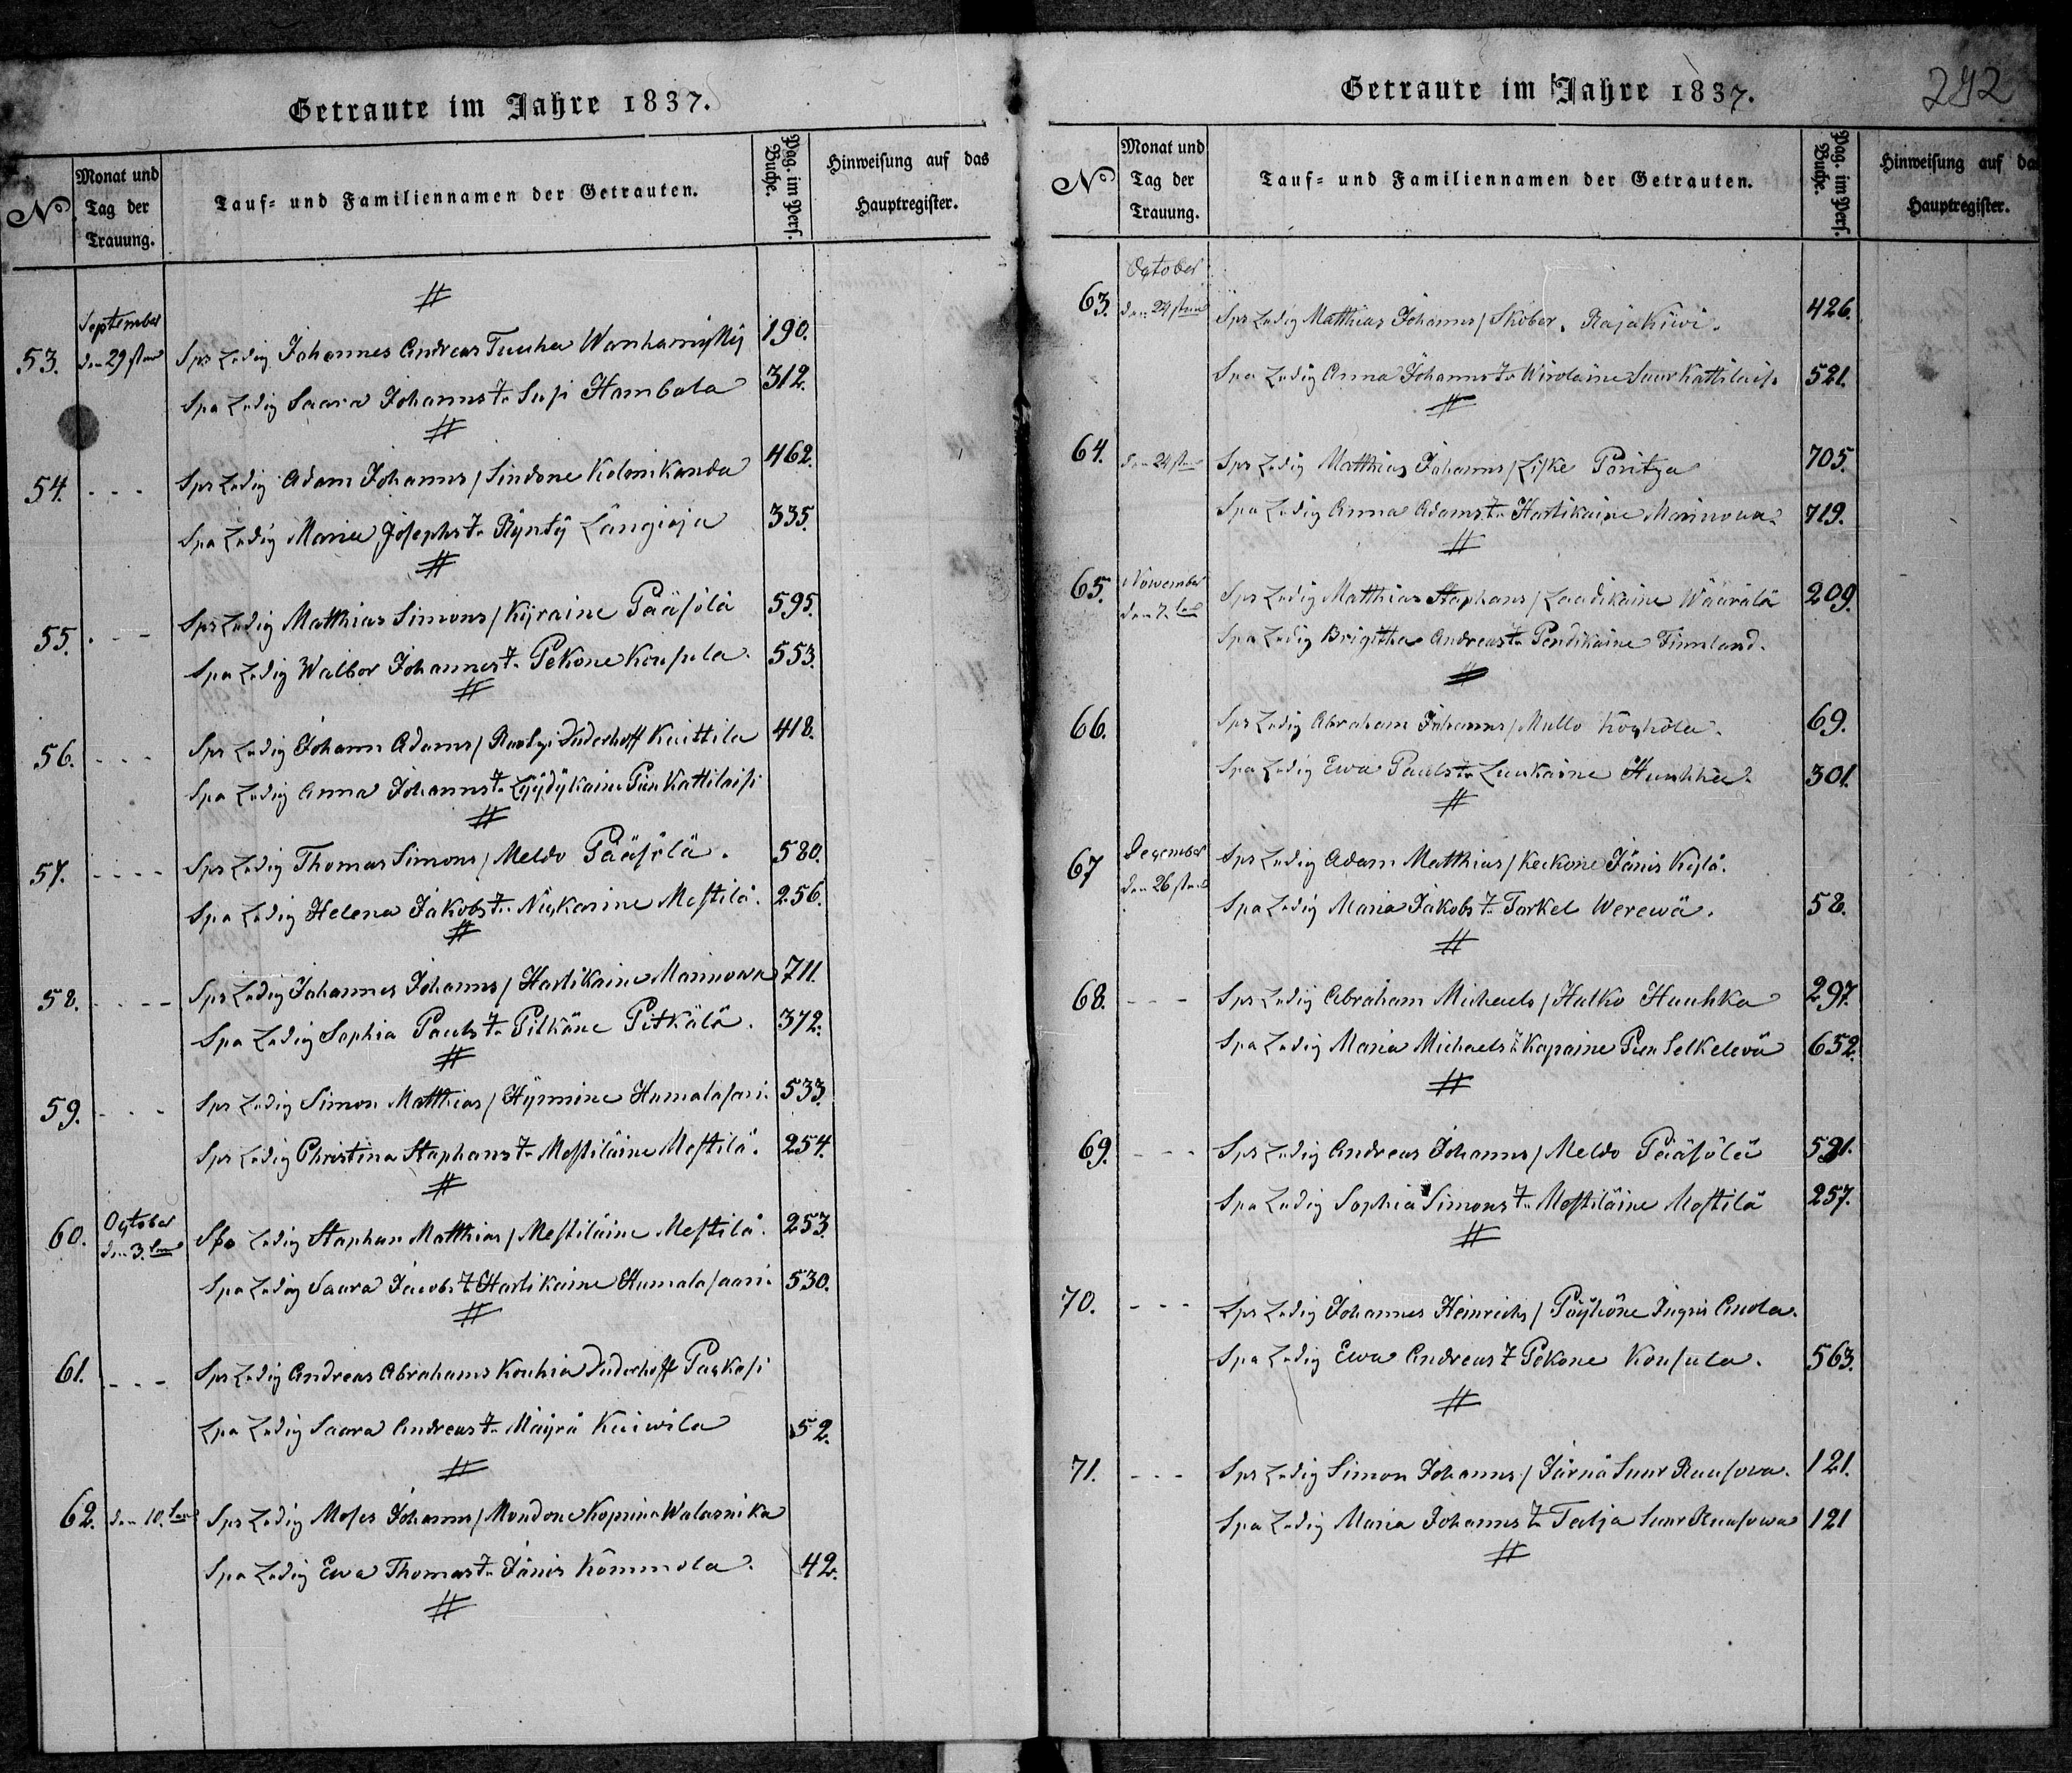 Getraute im Jahre 1837.
No
Monat und Tag der Trauung.
Tauf- und Familiennamen der Getrauten.
Pag. im Pers. Buche.
Hinweisung auf das Hauptregister.
September
53. den 29sten Spr Ledig Johannes Andreas Tuuha 190.
Spa Ledig Saara Johannst. Susi Hambala 312.
54. - - - Spr Ledig Adam Johanns/ Sindone Kolonikanda 462.
Spa Ledig Maria Josephst. Rynty Längioja 335.
55. - - - Spr Ledig Matthias Simons/ Kyraine Pääsölä 595.
Spa Ledig Walbor Johannest. Pekone Konsula. 553.
56. - - - Spr Ledig Johann Adams/ Duderhoff Kaittila 418.
Spa Ledig Anna Johannst. Lyydykaine Pien Kattilaisi
57. - - - - Spr Ledig Thomas Simons/ Meldo Pääsölä. 580.
Spa Ledig Helena Jakobst. Nuskarine Mestilä. 256.
58. - - - - Spr Ledig Johannes Johanns/ Hartikaine Marinowa 711.
Spa Ledig Sophia Paulst. Pitkäne Pitkälä. 372.
59. - - - Spr Ledig Simon Matthias/ Hynnine Humalasari. 533.
Spr Ledig Christina Staphanst. Mestiläine Mestilä. 254.
October
60. den 3.ten Spr Ledig Staphan Matthias/ Mestiläine Mestilä. 253.
Spa Ledig Saara Jacobst. Hartikaine Humalasaari. 530.
61. - - - Spr Ledig Andreas Abrahams Kouhia Duderhoff Paskosi
Spa Ledig Saara Andreast. Mäyrä Kaiwila 52.
62. den 10.ten Spr Ledig Moses Johanns/ Mondone Koprina Walasnika
Spa Ledig Ewa Thomast. Jänis Kömmola. 42.
Getraute im Jahre 1837.
292
No
Monat und Tag der Trauung.
Tauf- und Familiennamen der Getrauten.
Pag. im Pers. Buche.
Hinweisung auf das Hauptregister.
October
63. den 24sten Spr Ledig Matthias Johanns/ Sköber. Rajakiwi. 426.
Spa Ledig Anna Johannst. Wirolaine Suur Kattilaisi. 521.
64. den 24sten Spr Ledig Matthias Johanns/ Liske Paritza 705.
Spa Ledig Anna Adamst. Hartikaine Marinowa. 719.
November
65. den 7.ten Spr Ledig Matthias Staphans/ Laadikaine Wäärälä 209.
Spa Ledig Brigitha Andreast. Pendikäine Finnland.
66. Spr Ledig Abraham Johanns/ Mullo Koskola. 69.
Spa Ledig Ewa Paulst. Laukaine Huuhka. 301.
December
67 den 26sten Spr Ledig Adam Matthias/ Keckone Jänis Kylä.
Spa Ledig Maria Jakobst. Tarkel Werewä. 58.
68. - - - Spr Ledig Abraham Michaels/ Hulko Huuhka 297.
Spa Ledig Maria Michaelst. Kapaine Pien Selkelewä 652.
69. - - - Spr Ledig Andreas Johanns/ Meldo Pääsölä 591.
Spa Ledig Sophia Simonst. Mestiläine Mestilä 257.
70. - - - Spr Ledig Johannes Heinrichs/ Pöyhöne Ingris Anola.
Spa Ledig Ewa Andreast. Pekone Konsula. 563.
71. - - - Spr Ledig Simon Johanns/ Järnä Suur Ruusowa. 121.
Spa Ledig Maria Johannst. Talja Suur Ruusowa 121